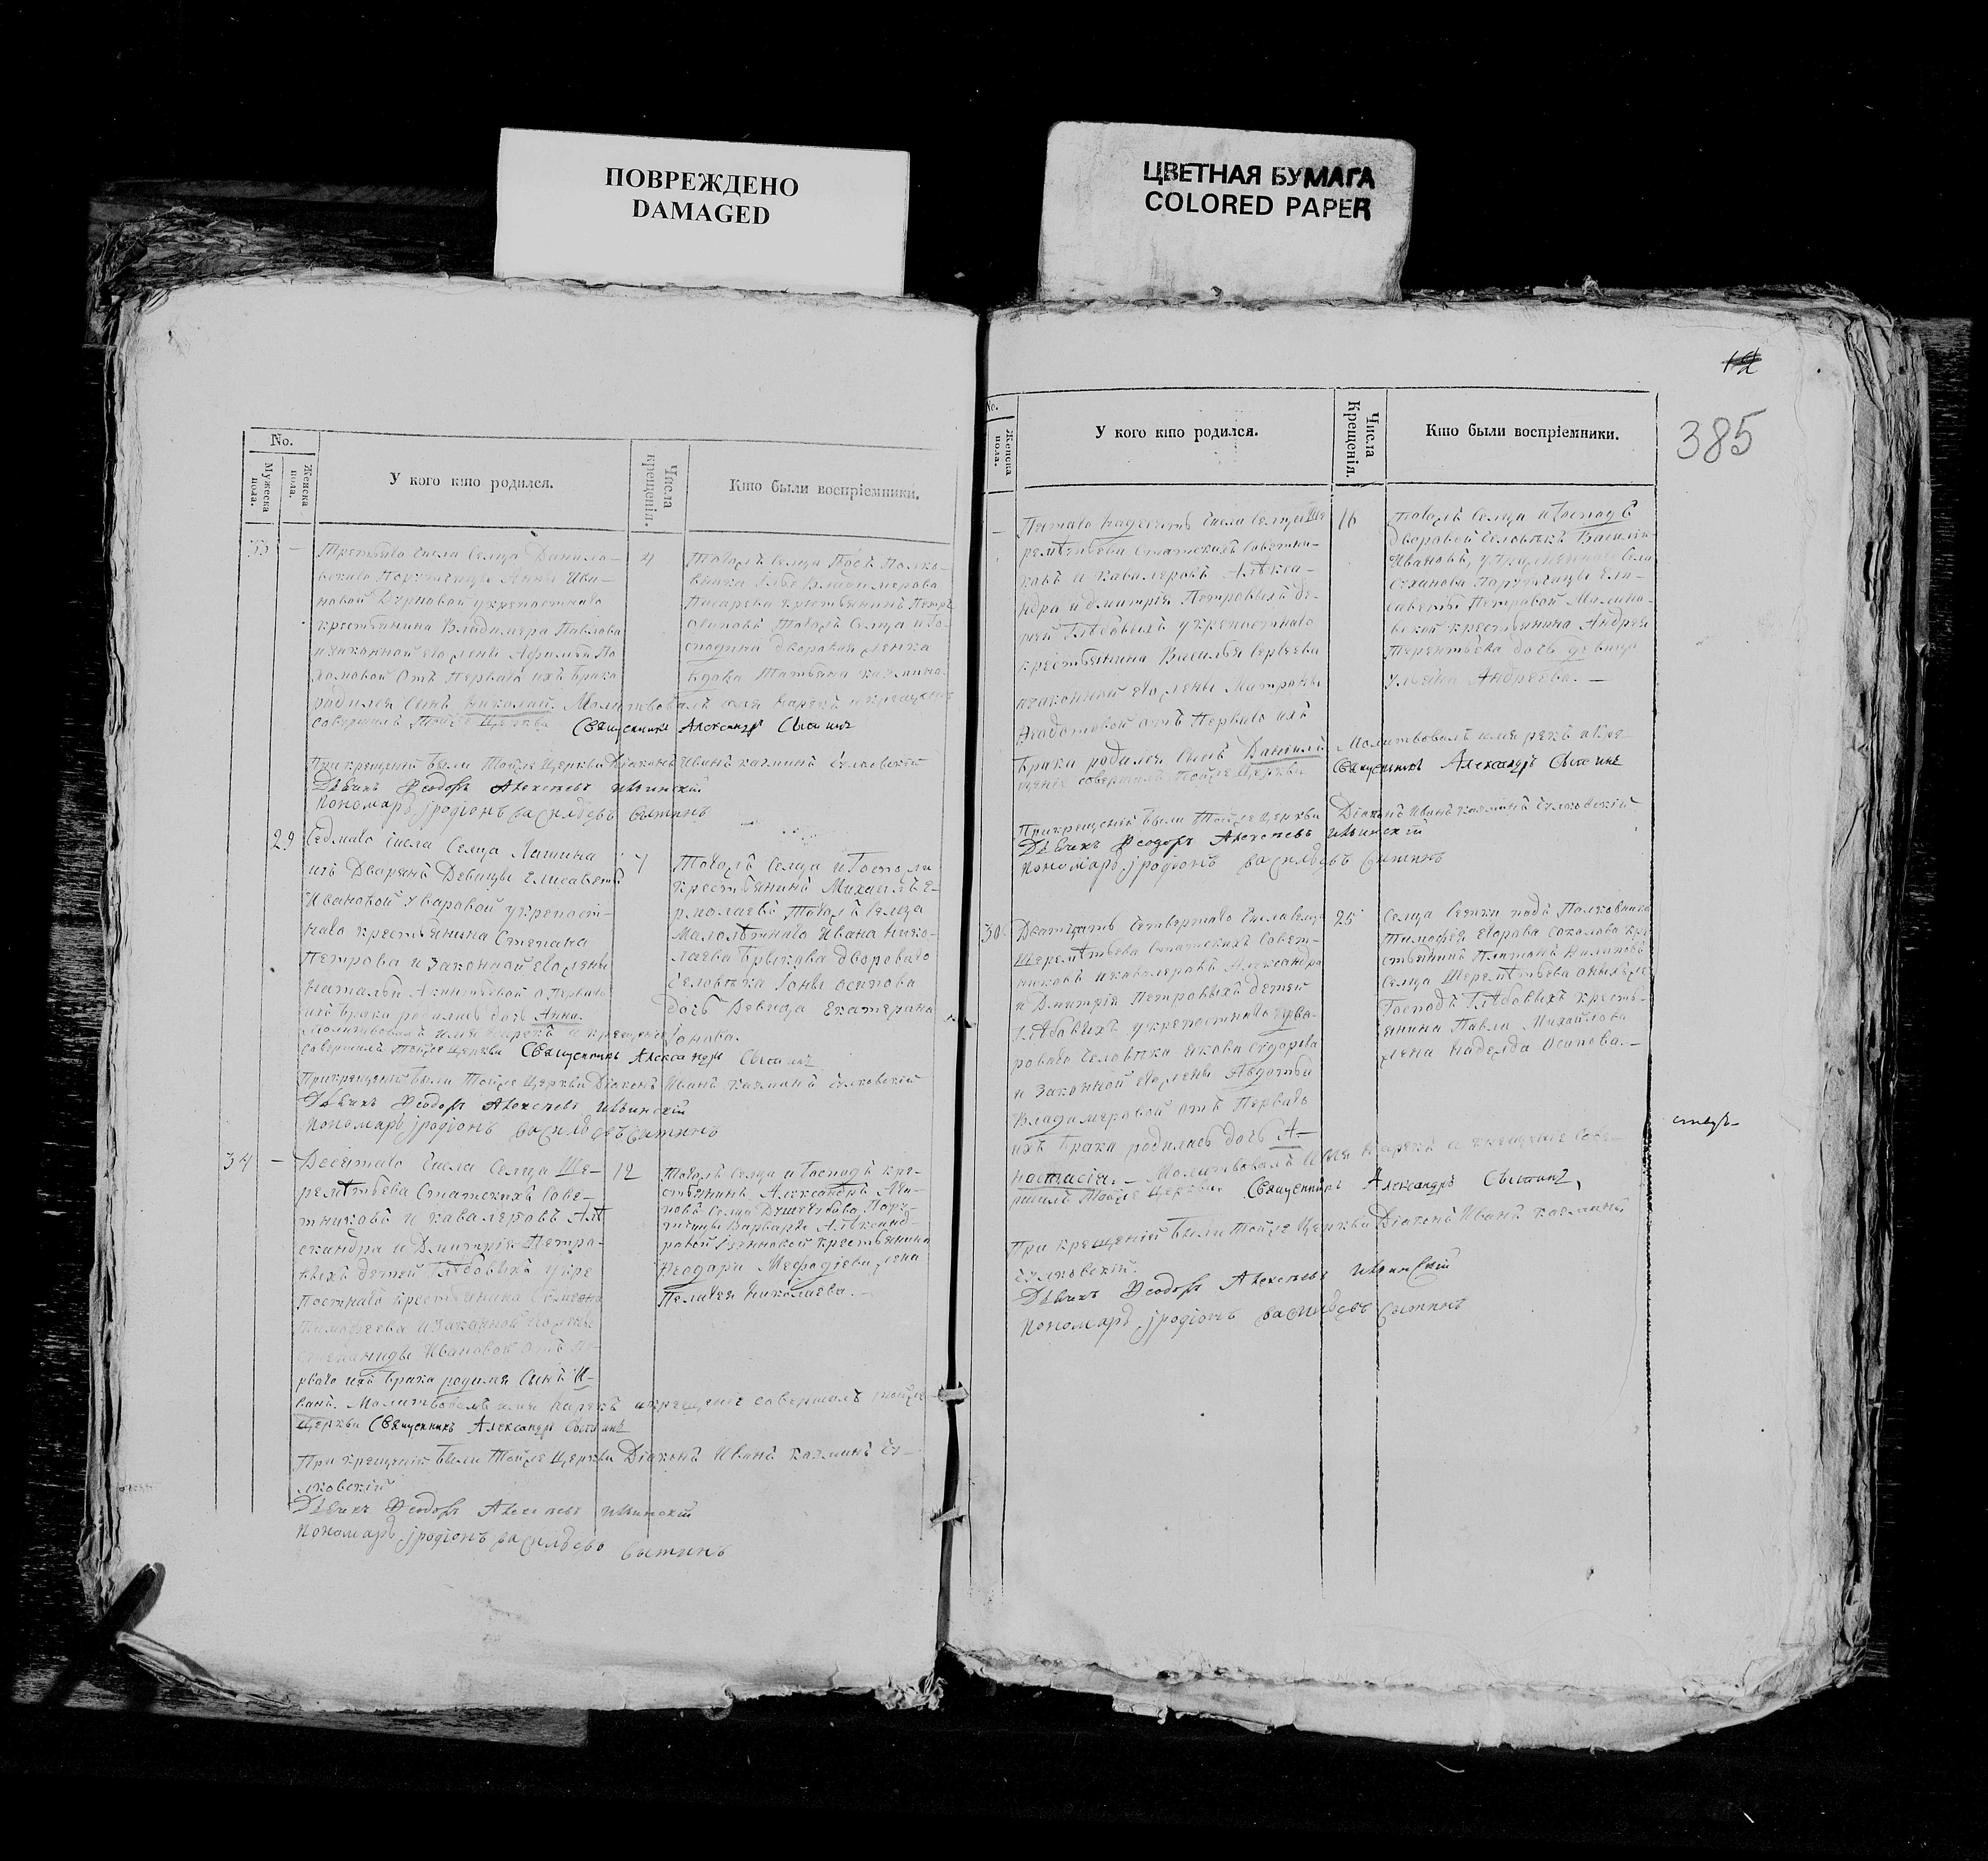 ПОВРЕЖДЕНО
DAMAGED
ЦВЕТНАЯ БУМАГА
COLORED PAPER
No.
Мужеска пола.
Женска пола.
У кого кто родился.
Числа крещенія.
Кто были воспріемники.
33 – Третьяго числа Селца Данило-
вскаго Порутчицы Анны Ива-
новой Дурновой у крепостнаго
крестьянина Владимера Павлова
и законной его жены Афимьи По
ховой Отъ Перваго ихъ брака
родился Сынъ Николай. Молитвовалъ имя нарекъ и крещеніе
совершилъ Тойже Церкви Священникъ Александръ Сытинъ
4
Тогожъ Селца Госп. Полко-
вника Глбе Владимерова
Писарева крестьянинъ Петръ
Тогожъ Селца и Го-
спожи дворовая женка
вдова Татьяна Казмина.
При крещеніи были Тойже Церкви Діаконъ Иванъ Казминъ Сулковскій
Дьячикъ Феодоръ Алексеевъ Ильинскій
Пономарь Іродіонъ Васильевъ Сытинъ
29 Седмаго числа Селца Лашина
изъ Дворянъ Девицы Елисаветы
Ивановой Уваровой у крепост-
наго крестьянина Степана
Петрова и Законной его жены
Натальи Акинтьевой о Перваго
ихъ брака родилась дочь Анна.
Молитвовалъ имя нарекъ и крещеніе
совершилъ Тойже Церкви Священникъ Александръ Сытинъ
7
Тогожъ Селца и Госпожи
крестьянинъ Михаилъ Е-
рмолаевъ Тогожъ Селца
Малолѣтнаго Ивана Нико-
лаева Брыкова двороваго
человѣка Іоны Осипова
дочь Девица Екатерина
Іонова.
При крещеніи были Тойже Церкви Діаконъ Иванъ Казминъ Сулковскій
Дьячикъ Феодоръ Алексеевъ Ильинскій
Пономарь Іродіонъ Васильевъ Сытинъ
34 – Десятаго числа Селца Ше-
реметьева Статскихъ Сове-
тниковъ и кавалеровъ Але
ксандра и Дмитрія Петро-
выхъ детей Глѣбовыхъ у кре
постнаго крестьянина Семена
Тимофеева и Законной его жены
Степаниды Ивановой отъ Пе-
рваго ихъ брака родился Сынъ И-
ванъ. Молитвовалъ имя нарекъ и крещеніе совершилъ тойже
Церкви Священникъ Александръ Сытинъ
12
Тогожъ Селца и Господъ кре-
стьянинъ Александръ
Селца Пору-
тчицы Варвары Александ-
ровой крестьянина
Феодора Мефодіева жена
Пелагея Николаева.
При крещеніи были Тойже Церкви Діаконъ Иванъ Казминъ Су-
лковскій
Дьячикъ Феодоръ Алексеевъ Ильинскій
Пономарь Іродіонъ Васильевъ Сытинъ
12
385
No.
Женска пола.
У кого кто родился.
Числа Крещенія.
Кто были воспріемники.
– Пятаго надесять числа Селца Ше
реметьева Статскихъ Советни-
ковъ и кавалеровъ Алекса-
ндра и Дмитрія Петровыхъ де-
тей Глѣбовыхъ у крепостнаго
крестьянина Василья Сергеева
и законной его жены Матроны
Феодотовой отъ Перваго ихъ
брака родился Сынъ Даніилъ. Молитвовалъ имя рекъ и кре-
щеніе совершилъ Тойже Церкви Священникъ Александръ Сытинъ
16
Тогожъ Селца и Господъ
дворовой человѣкъ Василій
Ивановъ, Села
Суханова Порутчицы Ели-
саветы Петровой Малино-
вской крестьянина Андрея
Терентьева дочь девица
Ульяна Андреева. –
При крещеніи были Тойже Церкви Діаконъ Иванъ Казминъ Сулковскій
Дьячикъ Феодоръ Алексеевъ Ильинскій
Пономарь Іродіонъ Васильевъ Сытинъ
30 Дватцать четвертаго числа Селца
Шереметьева Статскихъ Совет-
никовъ и кавалеровъ Александра
и Дмитрія Петровыхъ детей
Глѣбовыхъ у крепостнаго дво-
роваго человѣка Якова Сидорова
и Законной его жены Авдотьи
Владимеровой отъ Перваго
ихъ брака родилась дочь А-
настасія. – Молитвовалъ Имя нарекъ и крещеніе Сове-
ршилъ Тойже Церкви. Священникъ Александръ Сытинъ
25
Селца Сенки подъ Полковника
Тимофея Егорова Соколова кре
стьянинъ Платонъ Филиповъ
Селца Шереметьева оныхъ же
Господъ Глѣбовыхъ кресть-
янина Павла Михайлова
жена Надежда Осипова. –
При крещеніи были Тойже Церкви Діаконъ Иванъ Казминъ
Сулковскій.
Дьячикъ Феодоръ Алексеевъ Ильинскій
Пономарь Іродіонъ Васильевъ Сытинъ